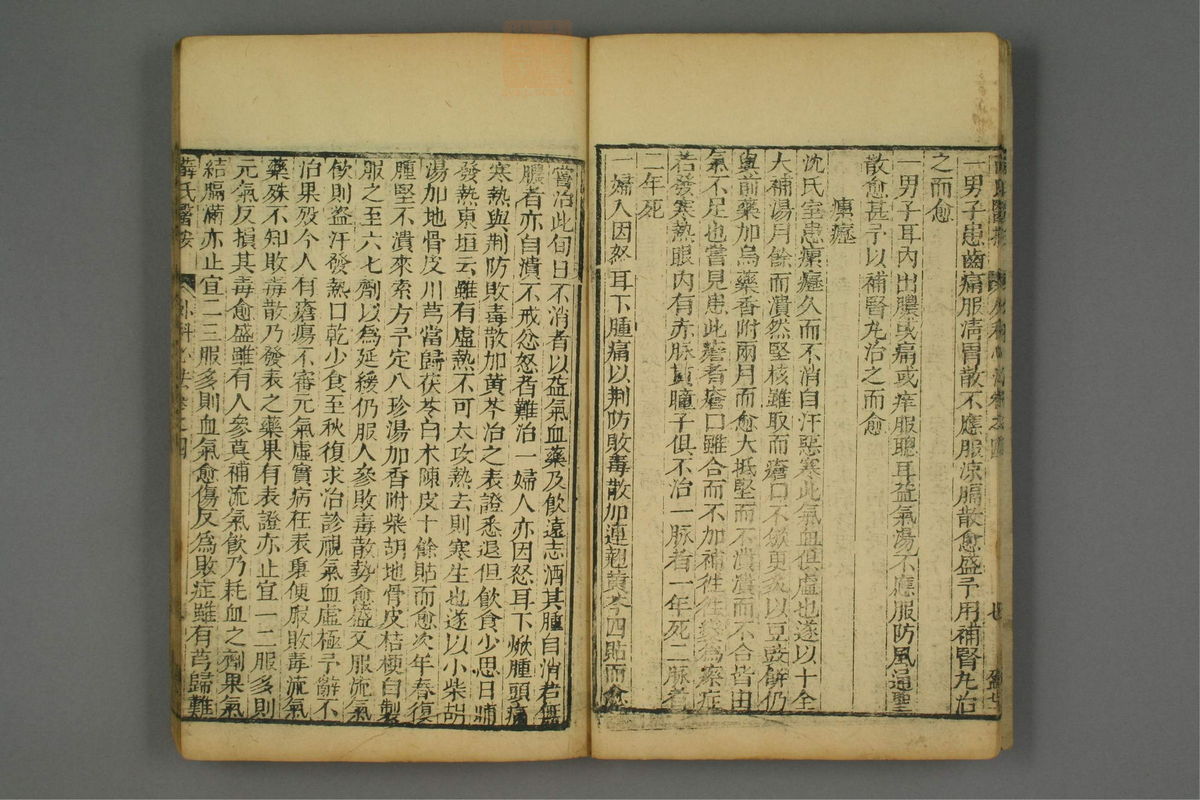 一男子患齒痛服清胃散不應服涼膈散愈盛予用補腎丸治
之而愈
一男子耳內出膿或痛或痒服聰耳益氣湯不應服防風通聖
散愈甚予以補腎丸治之而愈
瘰癧
沈氏室患瘰癧久而不消自汗惡寒此氣血俱虛也遂以十全
大補湯月餘而潰然堅核雖取而瘡口不斂更灸以豆豉餅仍
與前藥加烏藥香附兩月而愈大抵堅而不潰潰而不合皆由
氣不足也嘗見患此瘡者瘡口雖合而不加補往往變為瘵症
若發寒熱眼內有赤脉貫瞳子俱不治一脉者一年死二脉者
二年死
一婦人因怒耳下腫痛以荆防敗毒散加連翹黃芩四貼而愈
嘗治此旬日不消者以益氣血藥及飲遠志酒其腫自消若無
膿者亦自潰不戒忿怒者難治一婦人亦因怒耳下焮腫頭痛
寒熱與荆防敗毒散加黃芩治之表證悉退但飲食少思日晡
發熱東垣云雖有虛熱不可大攻熱去則寒生也遂以小柴胡
湯加地骨皮川芎當歸茯苓白术陳皮十餘貼而愈次年春復
腫堅不潰來索方予定八珍湯加香附柴胡地骨皮桔梗自製
服之至六七劑以為延緩仍服人參敗毒散勢愈盛又服流氣
飲則盜汗發熱口乾少食至秋復求治診視氣血虛極予辭不
治果歿今人有瘡瘍不審元氣虛實病在表裏便服敗毒流氣
藥殊不知敗毒散乃發表之藥果有表證亦止宜一二服多則
元氣反損其毒愈盛雖有人參莫補流氣飲乃耗血之劑果氣
結膈滿亦止宜二三服多則血氣愈傷反為敗症雖有芎歸難
薛氏醫按 外科心法卷之四